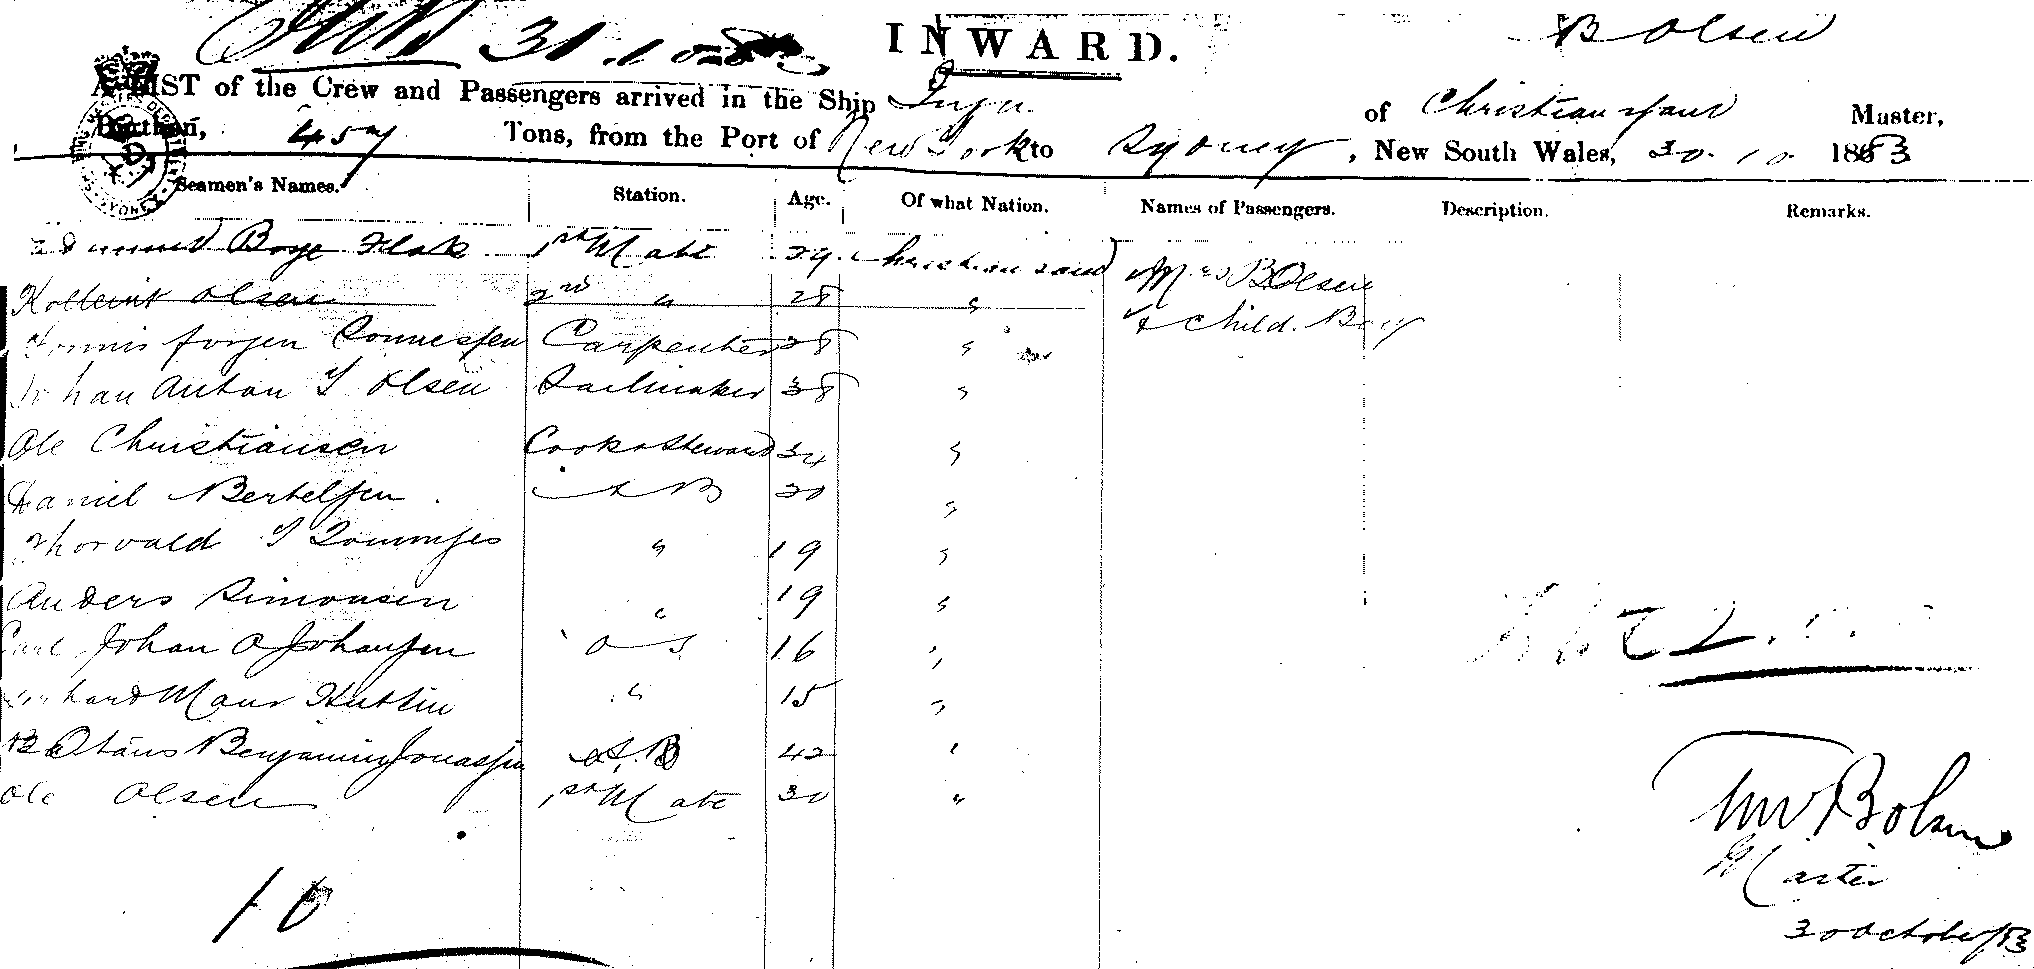 31.10.83 INWARD. B Olsen
A LIST of the Crew and Passengers arrived in the Ship of Christiansand Master,
Burthen, 457 Tons, from the Port of New York to Sydney, New South Wales, 30.10 1883
Seamen's Names. Station. Age. Of what Nation. Names of Passengers. Description. Remarks.
Boye Flak 1st Mate 29 Christiansand Mrs B Olsen
Olsen 2nd " 28 " & child. Boy
Jorgen Carpenter 28 "
Johan Anton T Olsen Sailmaker 38 "
Ole Christiansen Cook & Steward 34 "
Daniel Bertelsen A B 20 "
Thorvald T " 19 "
Anders Simonsen " 19 "
Carl Johan O Johansen O S 16 "
" 15 "
Benjamin Jonassen A.B 42 "
Ole Olsen 1st Mate 30 "
B Olsen
Master
30 October/83
10